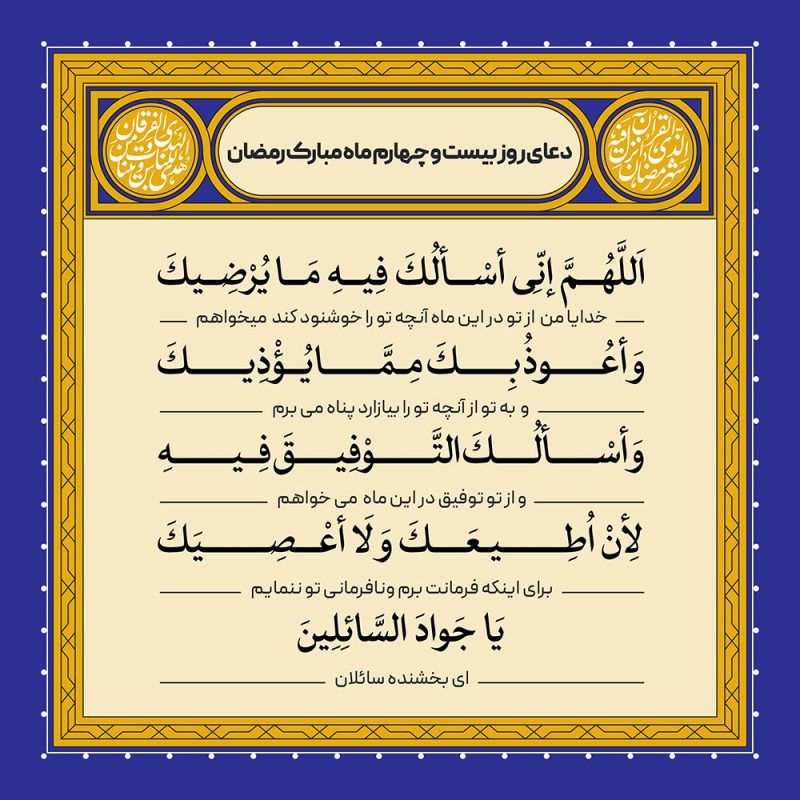 دعای روز بیست و چهارم ماه مبارک رمضان
شهر رمضان الذی انزل فیه القرآن
هدی للناس و بینات من الهدی و الفرقان
اَللَّهُمَّ إنِّی أسْألُكَ فِیهِ مَا یُرْضِیكَ
خدایا من از تو در این ماه آنچه تو را خوشنود کند میخواهم
وَ أعُوذُ بِكَ مِمَّا یُؤْذِیكَ
و به تو از آنچه تو را بیازارد پناه می برم
وَ أسْألُكَ التَّوْفِیقَ فِیهِ
و از تو توفیق در این ماه می خواهم
لِأنْ اُطِیعَكَ وَ لَا أعْصِیَكَ
برای اینکه فرمانت برم ونافرمانی تو ننمایم
یَا جَوادَ السَّائِلِینَ
ای بخشنده سائلان